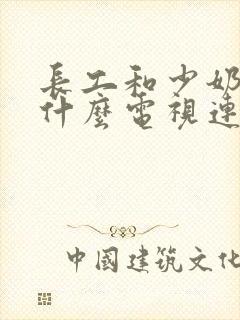 長工和少奶
什麼電視連
中國建筑文化